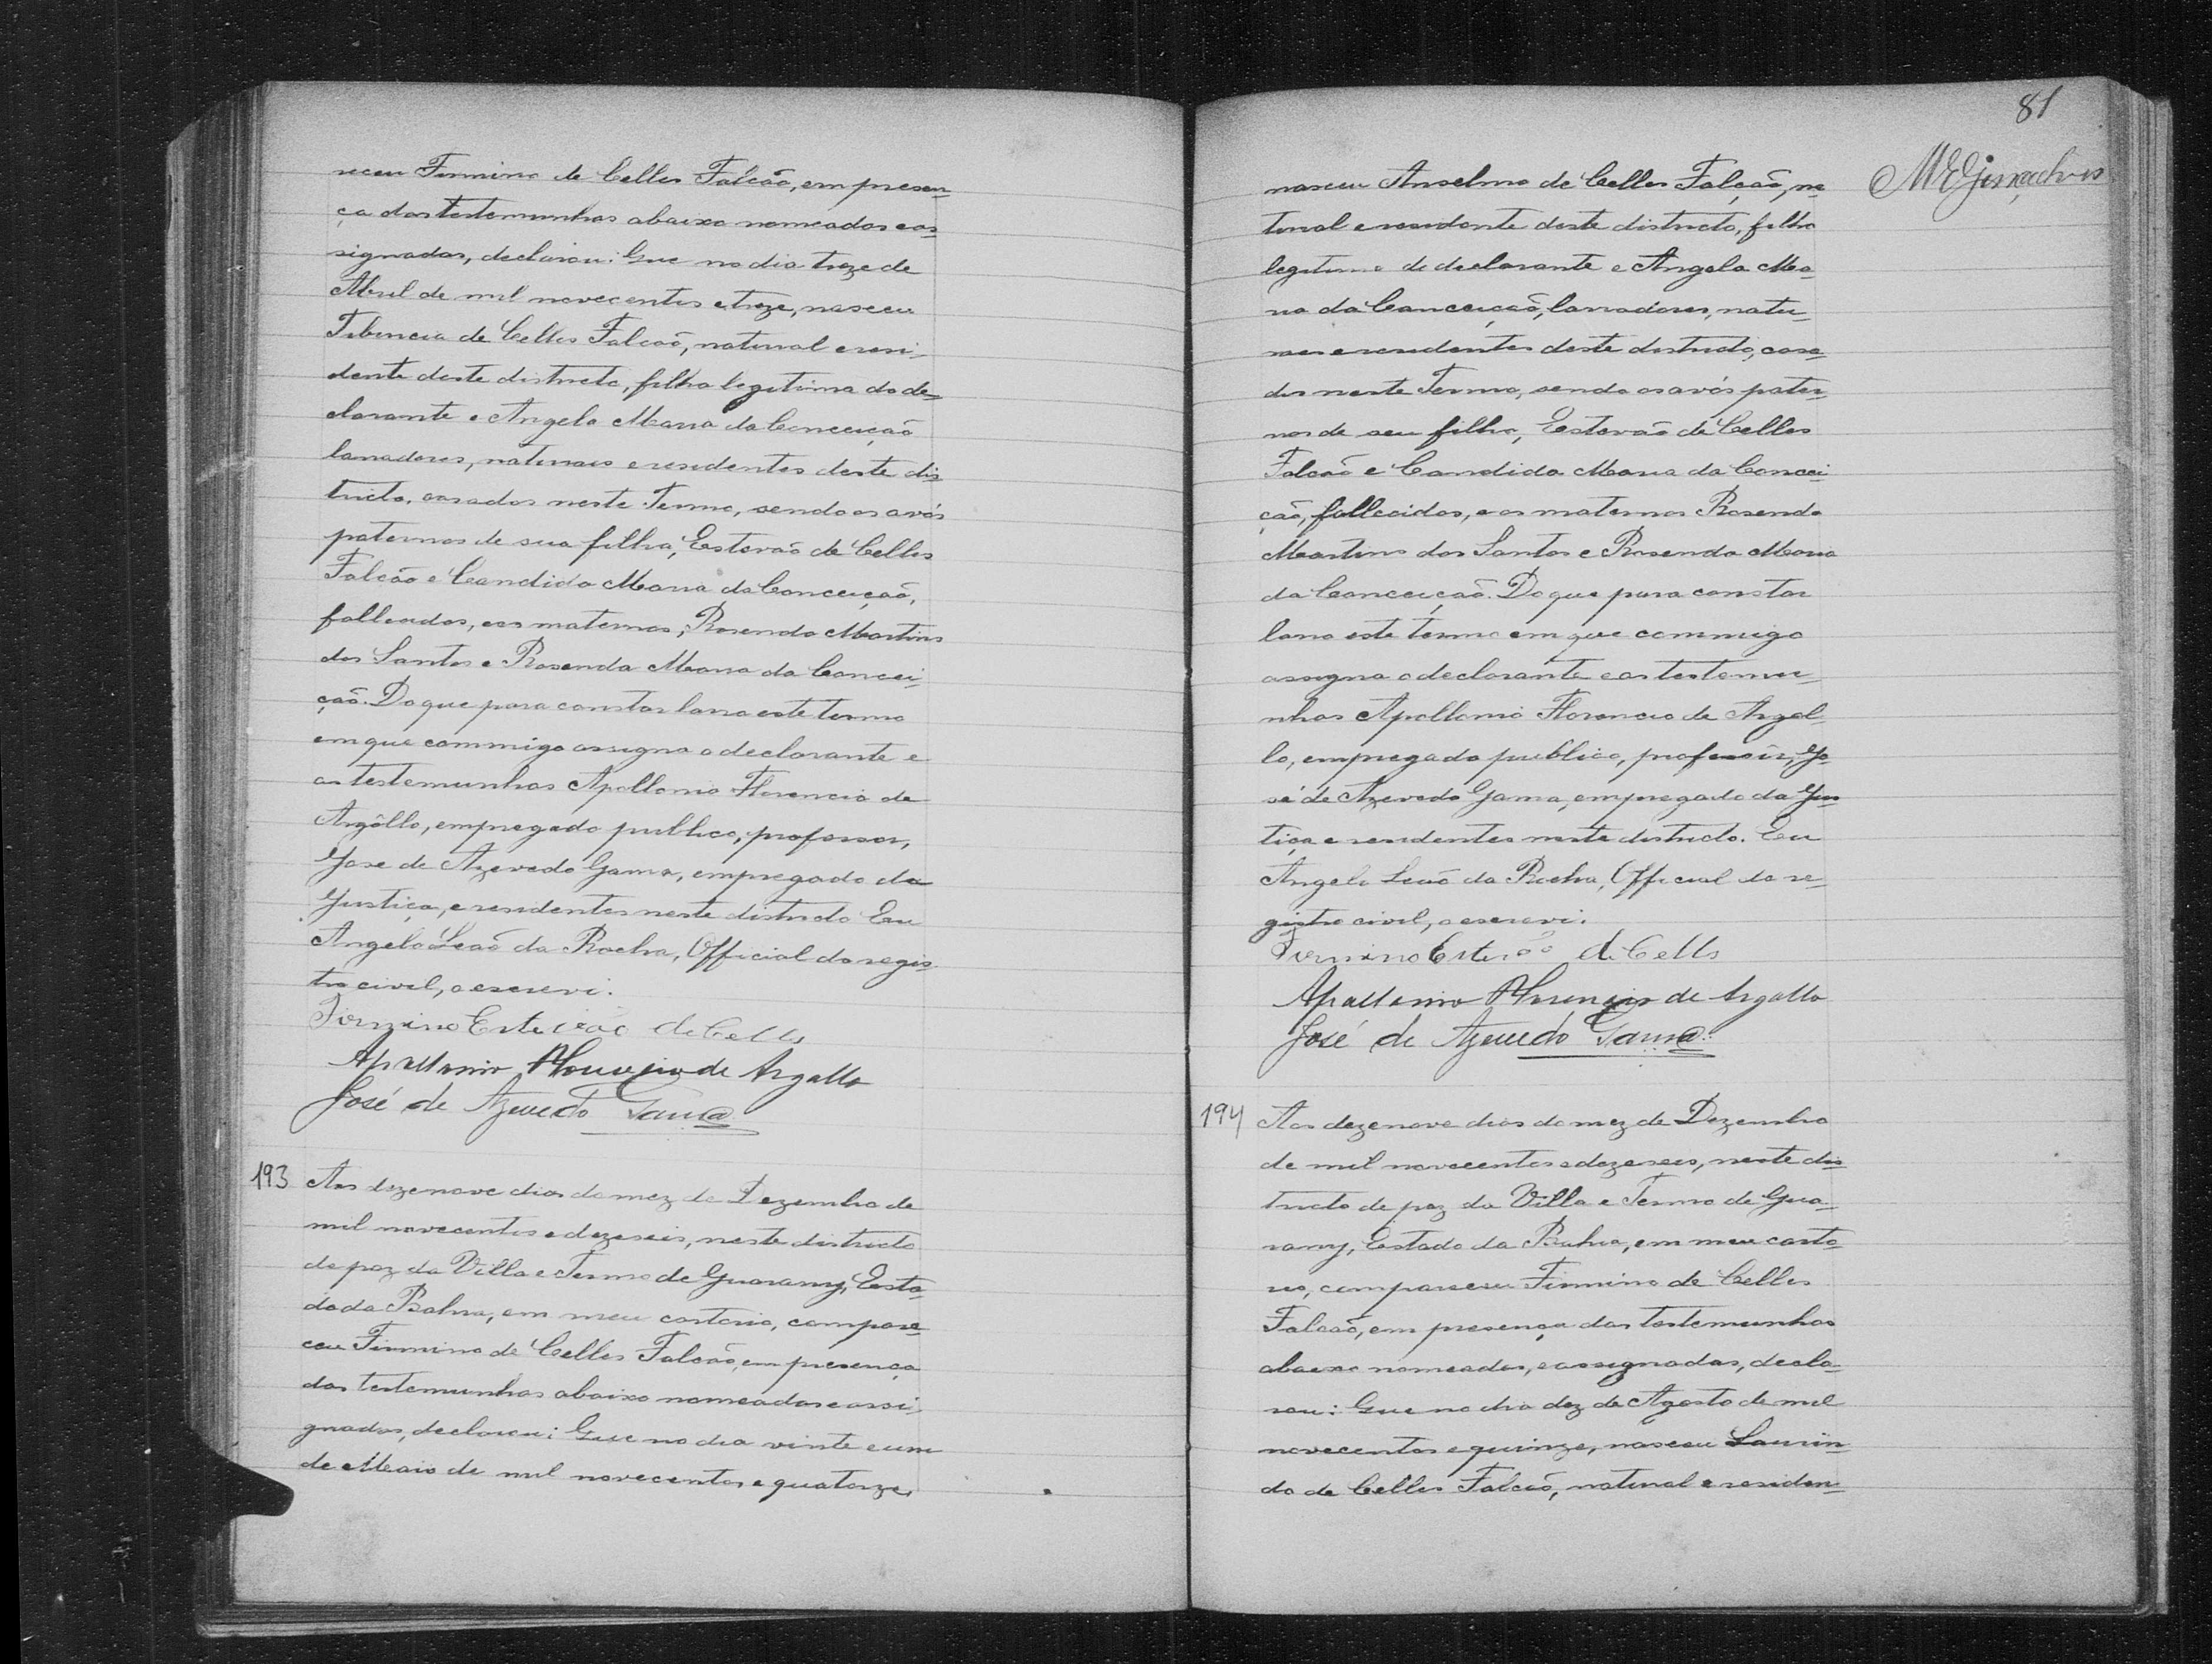 receu Firmino de Celles Falcão, em presen-
ça das testemunhas abaixo nomeadas e as-
signadas, declarou: Que no dia treze de
Abril de mil novecentos e treze, nasceu
Tibuncia de Celles Falcão, natural e resi-
dente deste districto, filha legitima do de-
clarante e Angela Maria da Conceição
lavradores, naturaes e residentes deste dis-
tricto, casados neste Termo, sendo os avós
paternos de sua filha, Estevão de Celles
Falcão e Candida Maria da Conceição,
fallecidos, e os maternos, Rosendo Martins
dos Santos e Rosenda Maria da Concei-
ção. Do que para constar lavro este termo
em que commigo assigna o declarante e
as testemunhas Apollonio Florencio de
Argôllo, empregado publico, professor,
Jose de Azevedo Gama, empregado da
Justiça, e residentes neste districto. Eu
Angelo Leaõ da Rocha, Official do regis-
tro civil, o escrevi.
Firmino Estevão de Celles
Apollonio Florencio de Argollo
José de Azevedo Gama
193 Aos dezenove dias do mez de Dezembro de
mil novecentos e dezeseis, neste districto
de paz da Villa e Termo de Guarany, Esta-
do da Bahia, em meu cartorio, compare-
ceu Firmino de Celles Falcão, em presença
das testemunhas abaixo nomeadas e assi-
gnadas, declarou: Que no dia vinte e um
de Maio de mil novecentos e quatorze,
81
nasceu Anselmo de Celles Falcão, na-
tural e residente deste districto, filho
legitimo do declarante e Angela Ma-
ria da Conceição, lavradores, natu-
raes e residentes deste districto, casa-
dos neste Termo, sendo os avós pater-
nos de seu filho, Estevão de Celles
Falcão e Candida Maria da Concei-
ção, fallecidos, e os maternos Rosendo
Martins dos Santos e Rosenda Maria
da Conceição. Do que para constar
lavro este termo em que commigo
assigna o declarante e as testemu-
nhas Apollonio Florencio de Argol-
lo, empregado publico, professor, Jo-
sé de Azevedo Gama, empregado da Jus-
tiça e residentes neste districto. Eu
Angelo Leaõ da Rocha, Official do re-
gistro civil, o escrevi.
Firmino Estevão de Celles
Apollonio Florencio de Argollo
José de Azevedo Gama
194 Aos dezenove dias do mez de Dezembro
de mil novecentos e dezeseis, neste dis-
tricto de paz da Villa e Termo de Gua-
rany, Estado da Bahia, em meu carto-
rio, compareceu Firmino de Celles
Falcão, em presença das testemunhas
abaixo nomeadas, e assignadas, decla-
rou: Que no dia dez de Agosto de mil
novecentos e quinze, nasceu Laurin-
do de Celles Falcão, natural e residen-